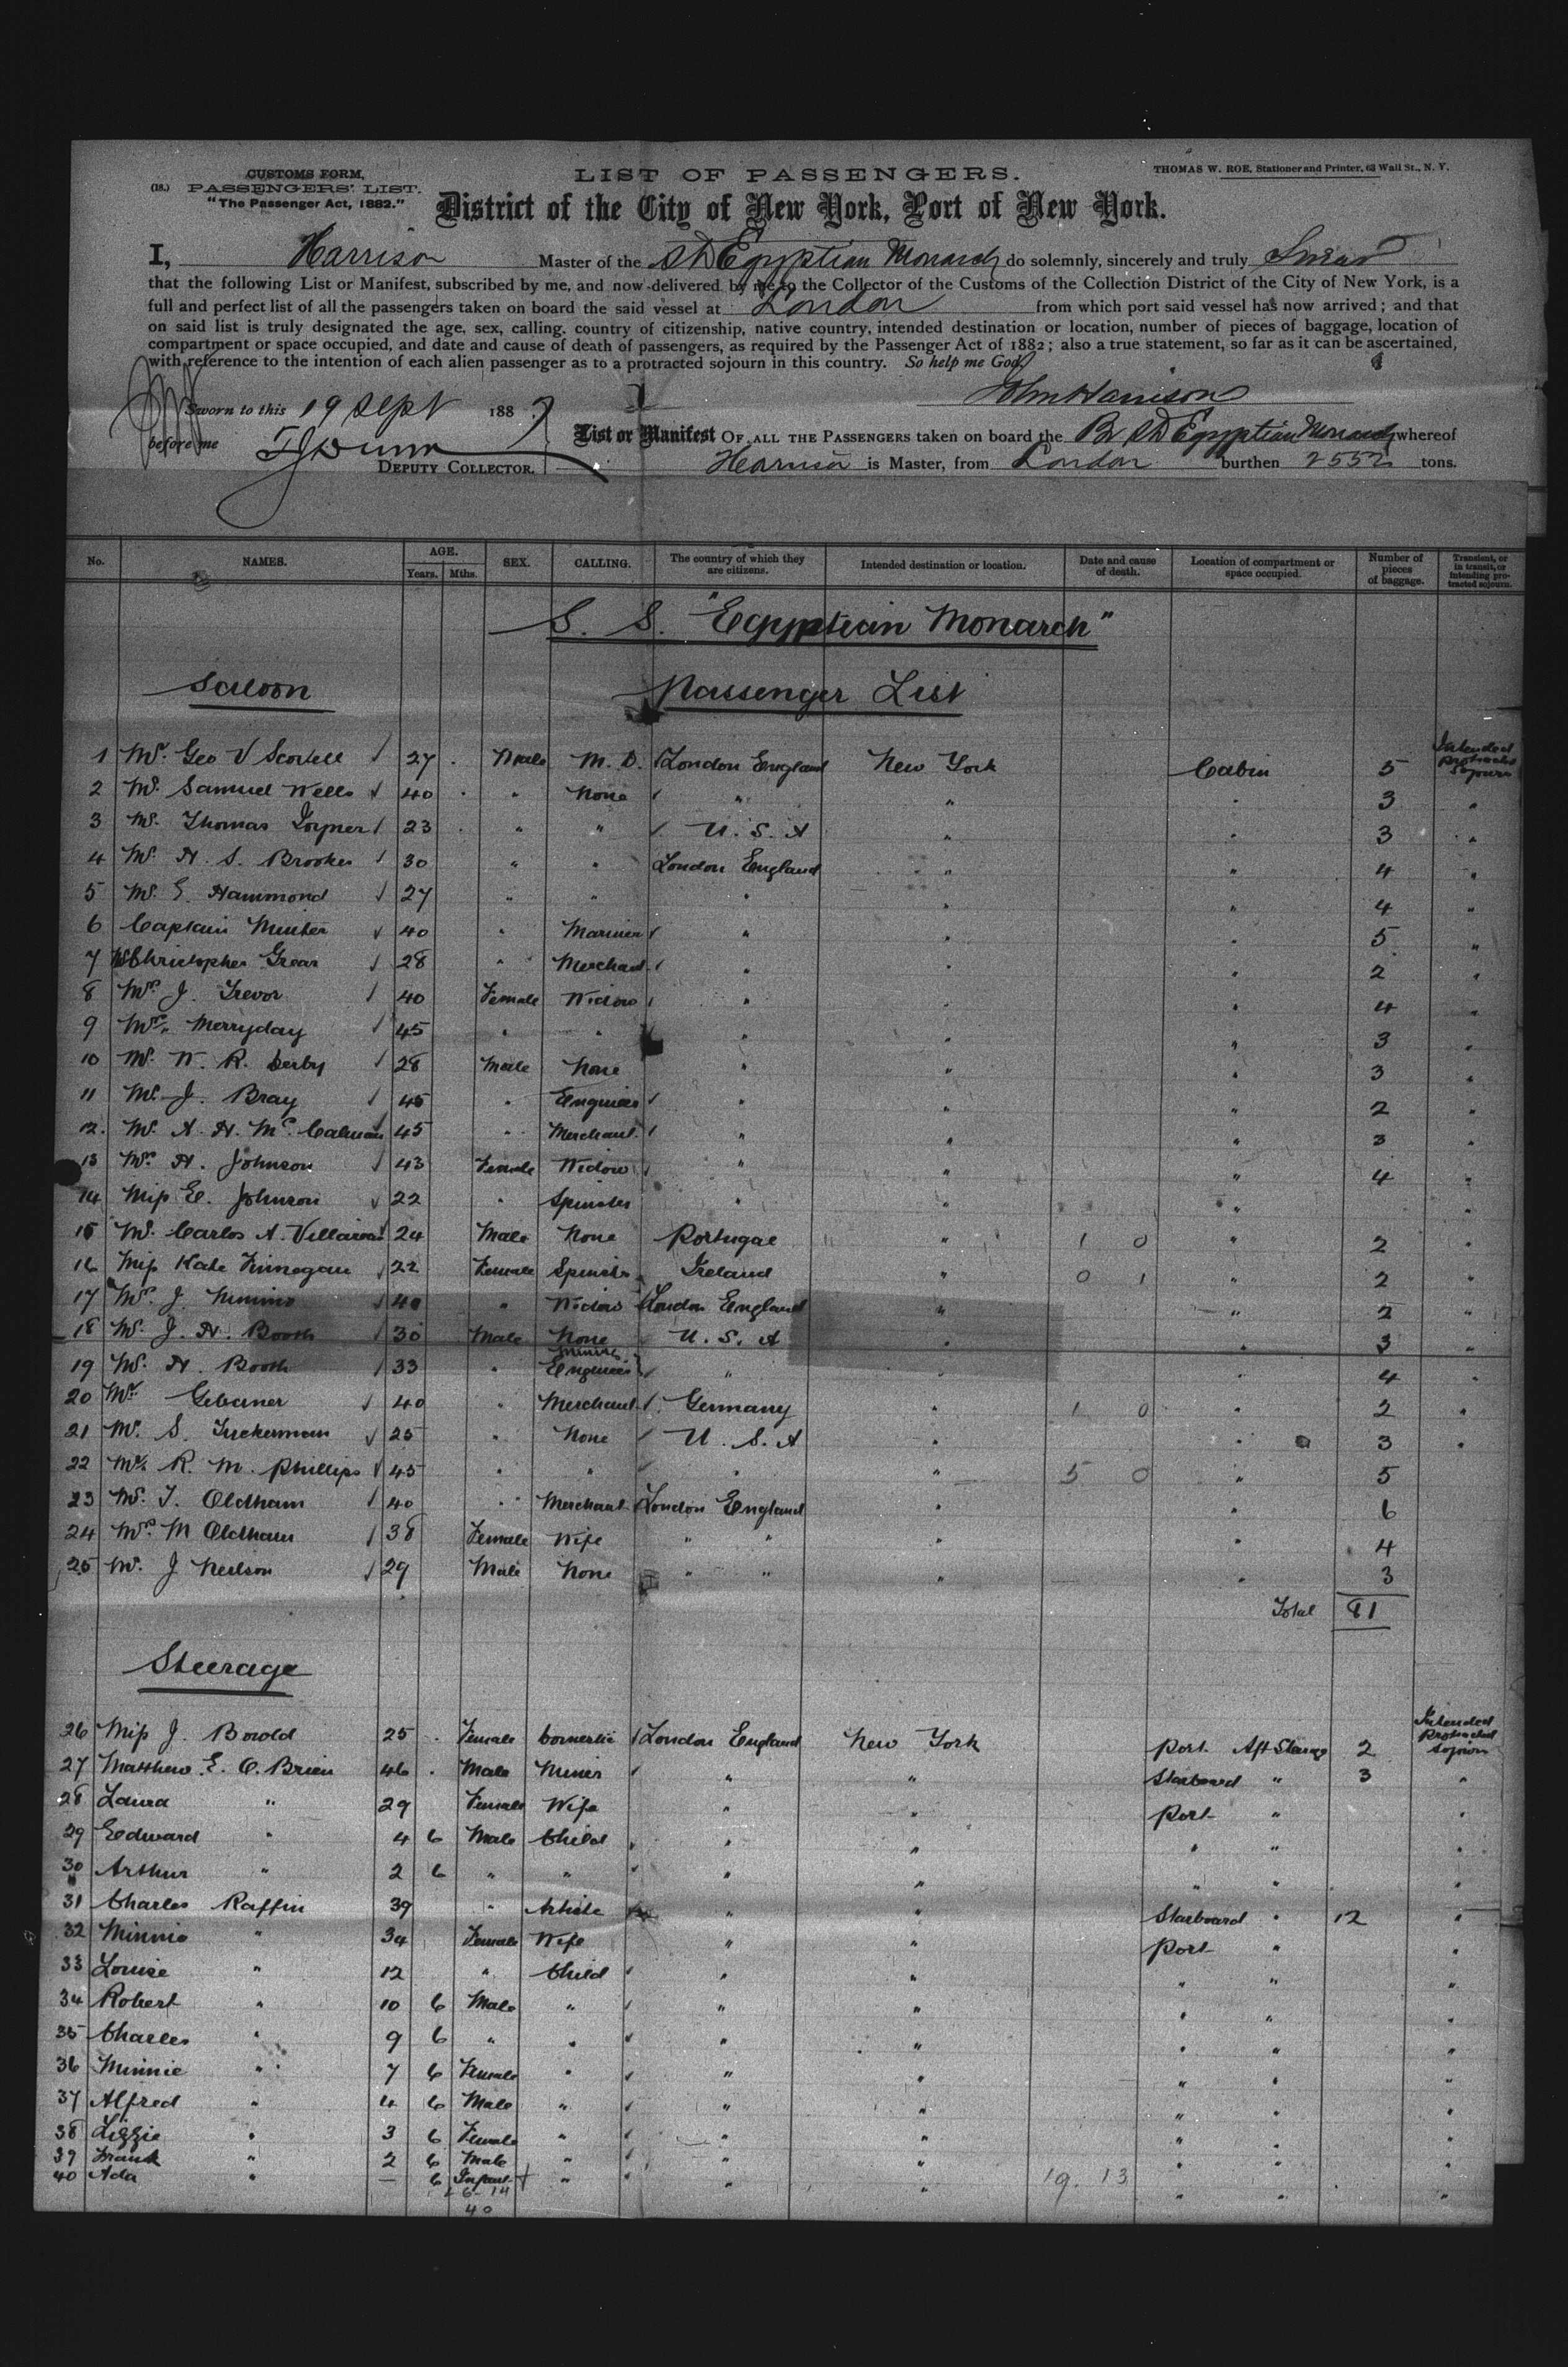 CUSTOMS FORM,
(18.) PASSENGERS' LIST.
"The Passenger Act, 1882."
LIST OF PASSENGERS.
THOMAS W. ROE, Stationer and Printer, 63 Wall St., N. Y.
District of the City of New York, Port of New York.
I, Harrison Master of the SS Egyptian Monarch do solemnly, sincerely and truly Swear
that the following List or Manifest, subscribed by me, and now delivered by me to the Collector of the Customs of the Collection District of the City of New York, is a
full and perfect list of all the passengers taken on board the said vessel at London from which port said vessel has now arrived; and that
on said list is truly designated the age, sex, calling, country of citizenship, native country, intended destination or location, number of pieces of baggage, location of
compartment or space occupied, and date and cause of death of passengers, as required by the Passenger Act of 1882; also a true statement, so far as it can be ascertained,
with reference to the intention of each alien passenger as to a protracted sojourn in this country. So help me God.
John Harrison
Sworn to this 19 Sept 188
before me
DEPUTY COLLECTOR.
List or Manifest OF ALL THE PASSENGERS taken on board the Br SS Egyptian Monarch whereof
Harrison is Master, from London burthen 2552 tons.
No. NAMES. AGE. Years. Mths. SEX. CALLING. The country of which they are citizens. Intended destination or location. Date and cause of death. Location of compartment or space occupied. Number of pieces of baggage. Transient, or in transit, or intending protracted sojourn.
S. S. "Egyptian Monarch"
Saloon Passenger List
1 Mr. Geo V 27 Male M. D. London England New York Cabin 5 Intended Protracted Sojourn
2 Mr. Samuel Wells 40 " None " " " 3 "
3 Mr. Thomas Joyner 23 " " U. S. A " " 3 "
4 Mr. H. S. Brookes 30 " " London England " " 4 "
5 Mr. Hammond 27 " " " " " 4 "
6 Captain 40 " Mariner " " " 5 "
7 Mr Christopher 28 " Merchant " " " 2 "
8 Mrs. J. Trevor 40 Female Widow " " " 4 "
9 Mrs. Merryday 45 " " " " " 3 "
10 Mr. W. R. Derby 28 Male None " " " 3 "
11 Mr. J. Bray 45 " Engineer " " " 2 "
12. Mr. A. H. Mc. 45 " Merchant " " " 3 "
13 Mrs. H. Johnson 43 Female Widow " " " 4 "
14 Miss E. Johnson 22 " Spinster " " " "
15 Mr. Carlos A. 24 Male None Portugal " 1 0 " 2 "
16 Miss Kate Finnegan 22 Female Spinster Ireland " 0 1 " 2 "
17 Mrs. J. 40 " Widow London England " " 2 "
18 Mr. J. H. Booth 30 Male None U. S. A " " 3 "
19 Mr. H. Booth 33 " Mining Engineer " " " 4 "
20 Mr. 40 " Merchant Germany " 1 0 " 2 "
21 Mr. S. Tuckerman 25 " None U. S. A " " 3 "
22 Mr. R. M. Phillips 45 " " " " 5 0 " 5
23 Mr. T. Oldham 40 " Merchant London England " " 6
24 Mrs. M Oldham 38 Female Wife " " " " 4
25 Mr. J Neilson 29 Male None " " " " 3
Total 81
Steerage
26 Miss J. 25 Female Domestic London England New York Port Aft Steerage 2 Intended Protracted Sojourn
27 Matthew E. O. Brien 46 Male Miner " " Starboard " 3 "
28 Laura " 29 Female Wife " " Port " "
29 Edward " 4 6 Male Child " " " " "
30 Arthur " 2 6 " " " " " " "
31 Charles Raffin 39 " Artiste " " Starboard " 12 "
32 Minnie " 34 Female Wife " " Port " "
33 Louise " 12 " Child " " " " "
34 Robert " 10 6 Male " " " " " "
35 Charles " 9 6 " " " " " " "
36 Minnie " 7 6 Female " " " " " "
37 Alfred " 4 6 Male " " " " " "
38 Lizzie " 3 6 Female " " " " " "
39 Frank " 2 6 Male " " " " " "
40 Ada " — 6 Infant " " " 19. 13 " " "
40